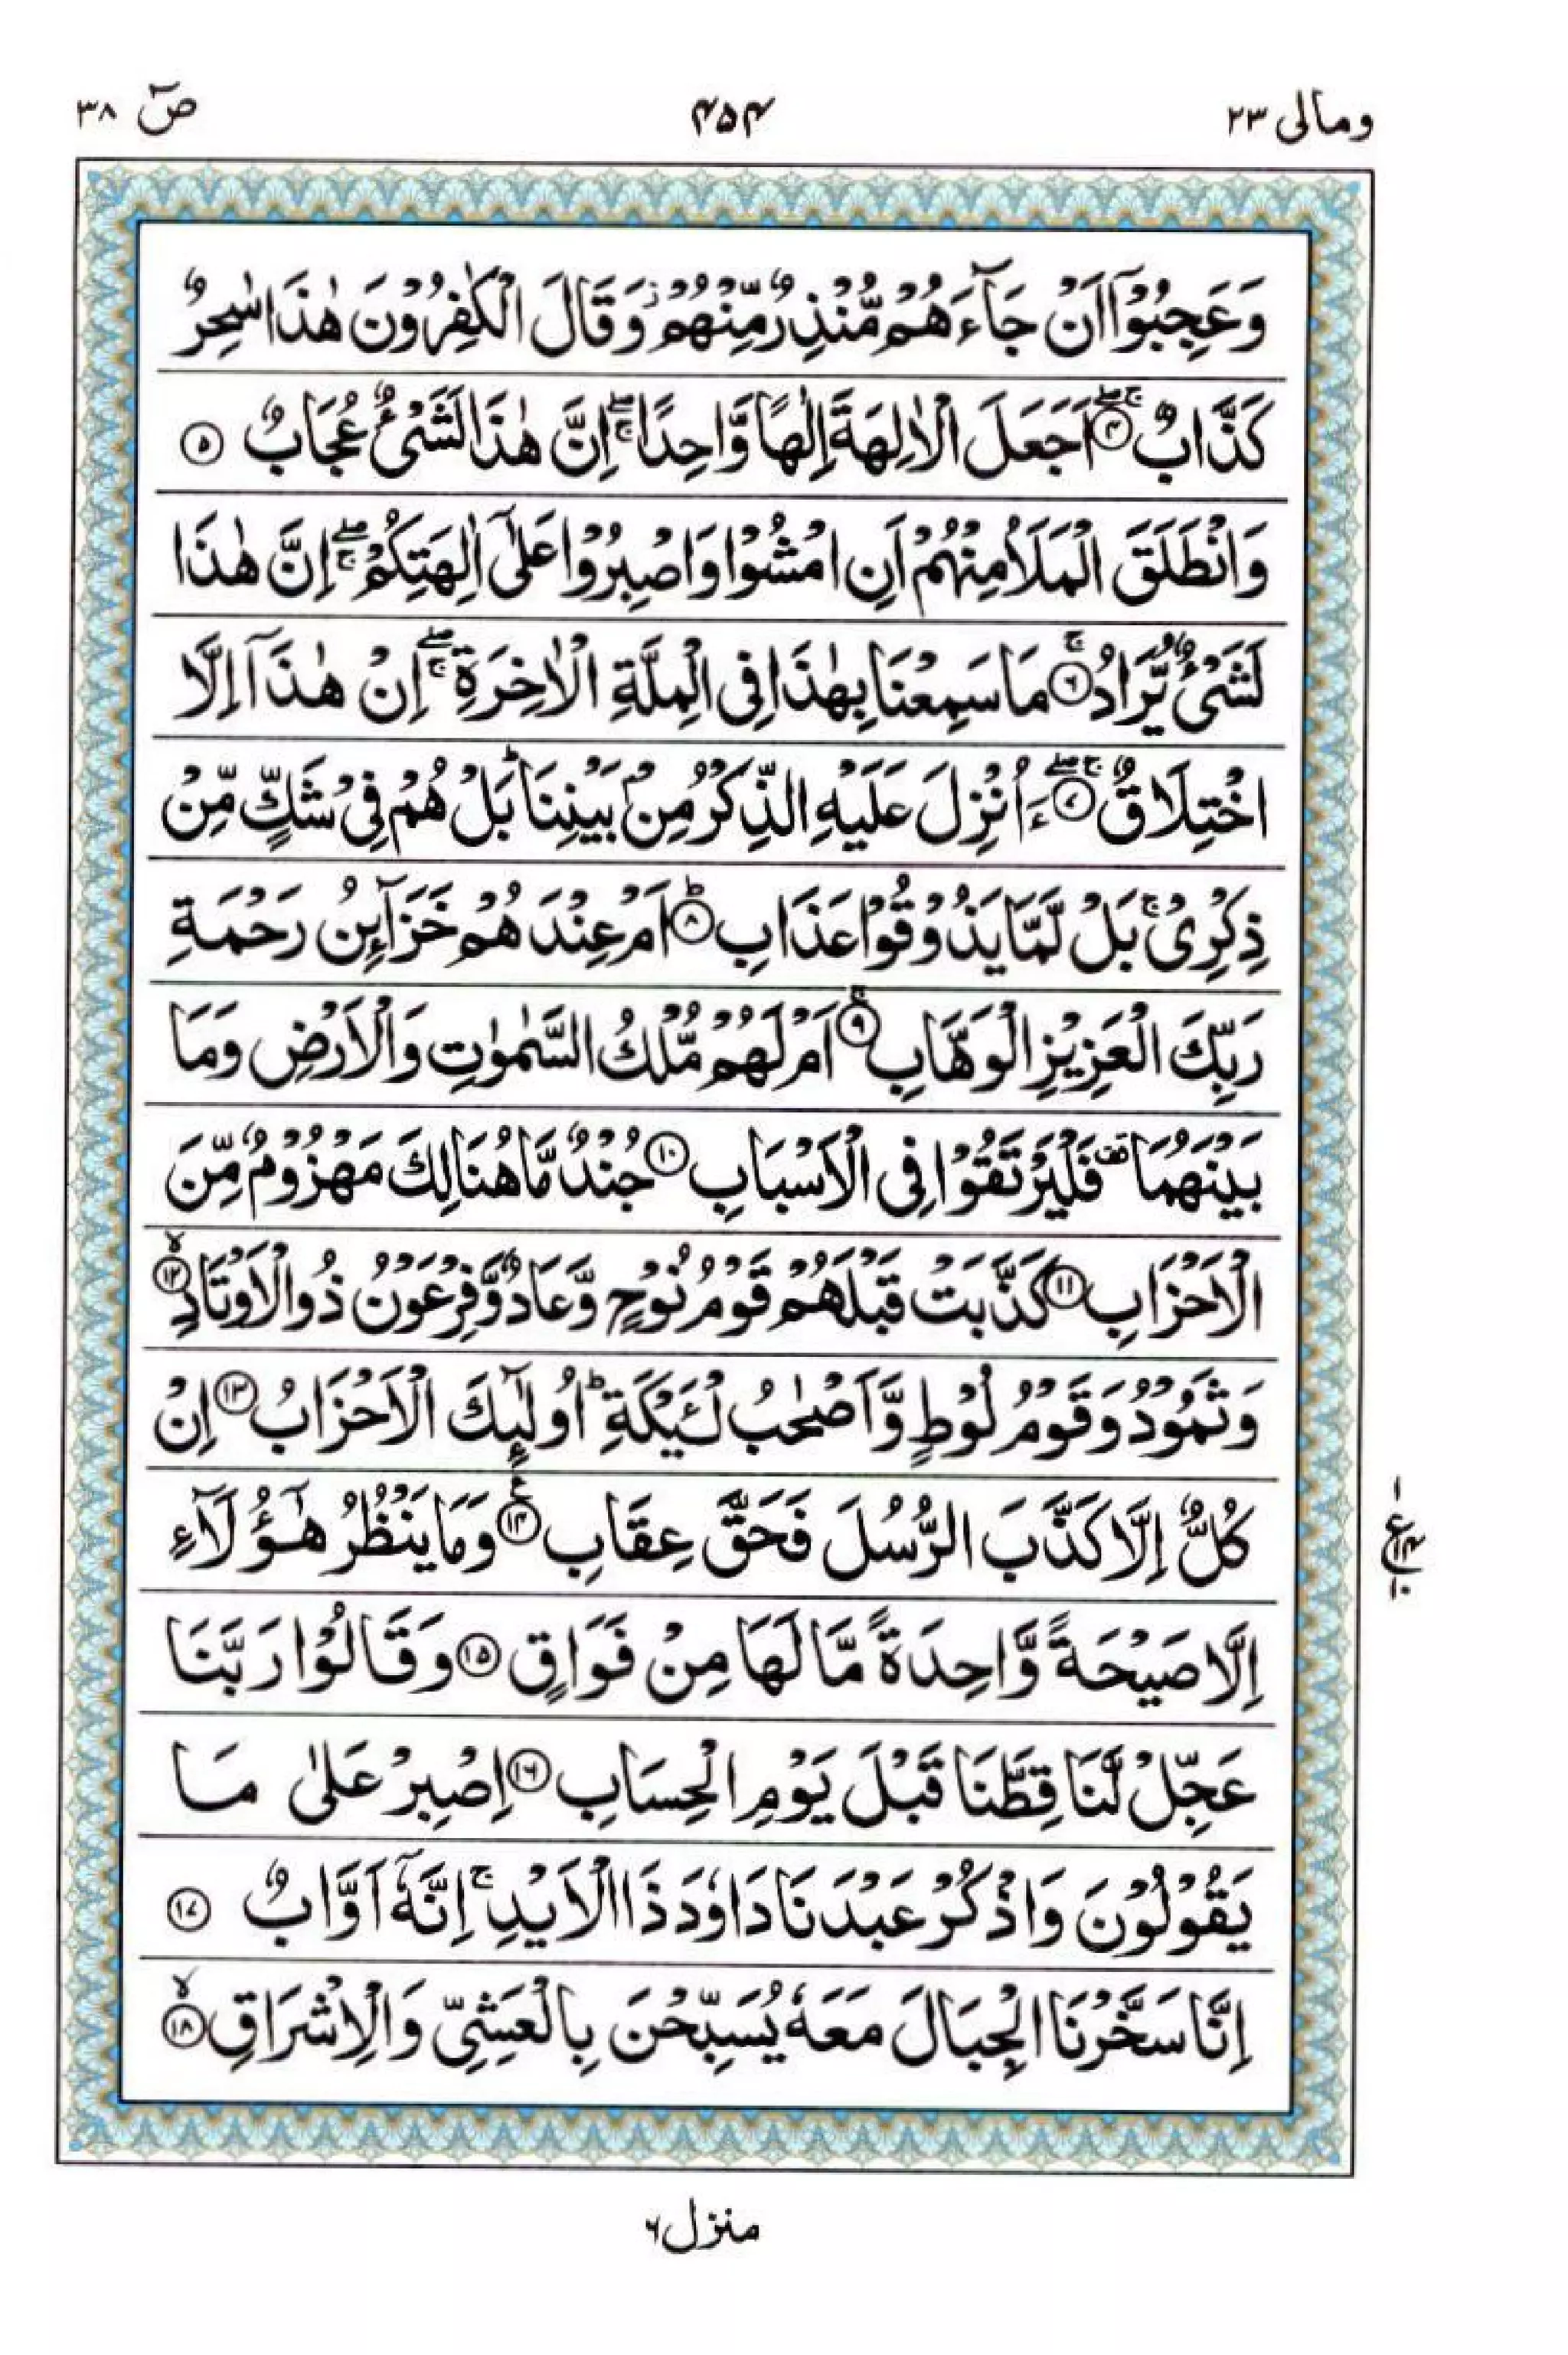 ومالی ۲۳
۴۵۴
صٓ ۳۸
وَعَجِبُوْۤا اَنْ جَآءَهُمْ مُّنْذِرٌ مِّنْهُمْ ؗ وَقَالَ الْكٰفِرُوْنَ هٰذَا سٰحِرٌ
كَذَّابٌ ۖۚ ۴ اَجَعَلَ الْاٰلِهَةَ اِلٰهًا وَّاحِدًا ۖۚ اِنَّ هٰذَا لَشَیْءٌ عُجَابٌ ۵
وَانْطَلَقَ الْمَلَاُ مِنْهُمْ اَنِ امْشُوْا وَاصْبِرُوْا عَلٰۤی اٰلِهَتِكُمْ ۖۚ اِنَّ هٰذَا
لَشَیْءٌ یُّرَادُ ۚ ۶ مَا سَمِعْنَا بِهٰذَا فِی الْمِلَّةِ الْاٰخِرَةِ ۖۚ اِنْ هٰذَاۤ اِلَّا
اخْتِلَاقٌ ۖۚ ۷ ءَاُنْزِلَ عَلَیْهِ الذِّكْرُ مِنْۢ بَیْنِنَا ؕ بَلْ هُمْ فِیْ شَكٍّ مِّنْ
ذِكْرِیْ ۚ بَلْ لَّمَّا یَذُوْقُوْا عَذَابِ ؕ ۸ اَمْ عِنْدَهُمْ خَزَآىِٕنُ رَحْمَةِ
رَبِّكَ الْعَزِیْزِ الْوَهَّابِ ۚ ۹ اَمْ لَهُمْ مُّلْكُ السَّمٰوٰتِ وَالْاَرْضِ وَمَا
بَیْنَهُمَا ۫ فَلْیَرْتَقُوْا فِی الْاَسْبَابِ ۱۰ جُنْدٌ مَّا هُنَالِكَ مَهْزُوْمٌ مِّنَ
الْاَحْزَابِ ۱۱ كَذَّبَتْ قَبْلَهُمْ قَوْمُ نُوْحٍ وَّعَادٌ وَّفِرْعَوْنُ ذُو الْاَوْتَادِ ۙ ۱۲
وَثَمُوْدُ وَقَوْمُ لُوْطٍ وَّاَصْحٰبُ لْـَٔیْكَةِ ؕ اُولٰٓىِٕكَ الْاَحْزَابُ ۱۳ اِنْ
كُلٌّ اِلَّا كَذَّبَ الرُّسُلَ فَحَقَّ عِقَابِ ۠ ۱۴ وَمَا یَنْظُرُ هٰۤؤُلَآءِ
اِلَّا صَیْحَةً وَّاحِدَةً مَّا لَهَا مِنْ فَوَاقٍ ۱۵ وَقَالُوْا رَبَّنَا
عَجِّلْ لَّنَا قِطَّنَا قَبْلَ یَوْمِ الْحِسَابِ ۱۶ اِصْبِرْ عَلٰی مَا
یَقُوْلُوْنَ وَاذْكُرْ عَبْدَنَا دَاوٗدَ ذَا الْاَیْدِ ۚ اِنَّهٗۤ اَوَّابٌ ۱۷
اِنَّا سَخَّرْنَا الْجِبَالَ مَعَهٗ یُسَبِّحْنَ بِالْعَشِیِّ وَالْاِشْرَاقِ ۙ ۱۸
۱
ع ۱۴
۱۰
منزل ۶